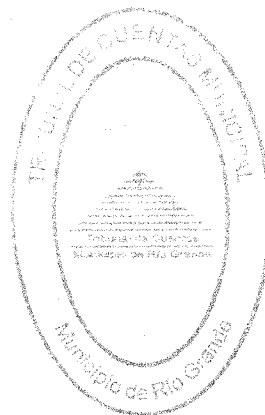 TRIBUNAL DE CUENTAS MUNICIPAL
Tribunal de Cuentas
Municipio de Río Grande
Municipio de Río Grande